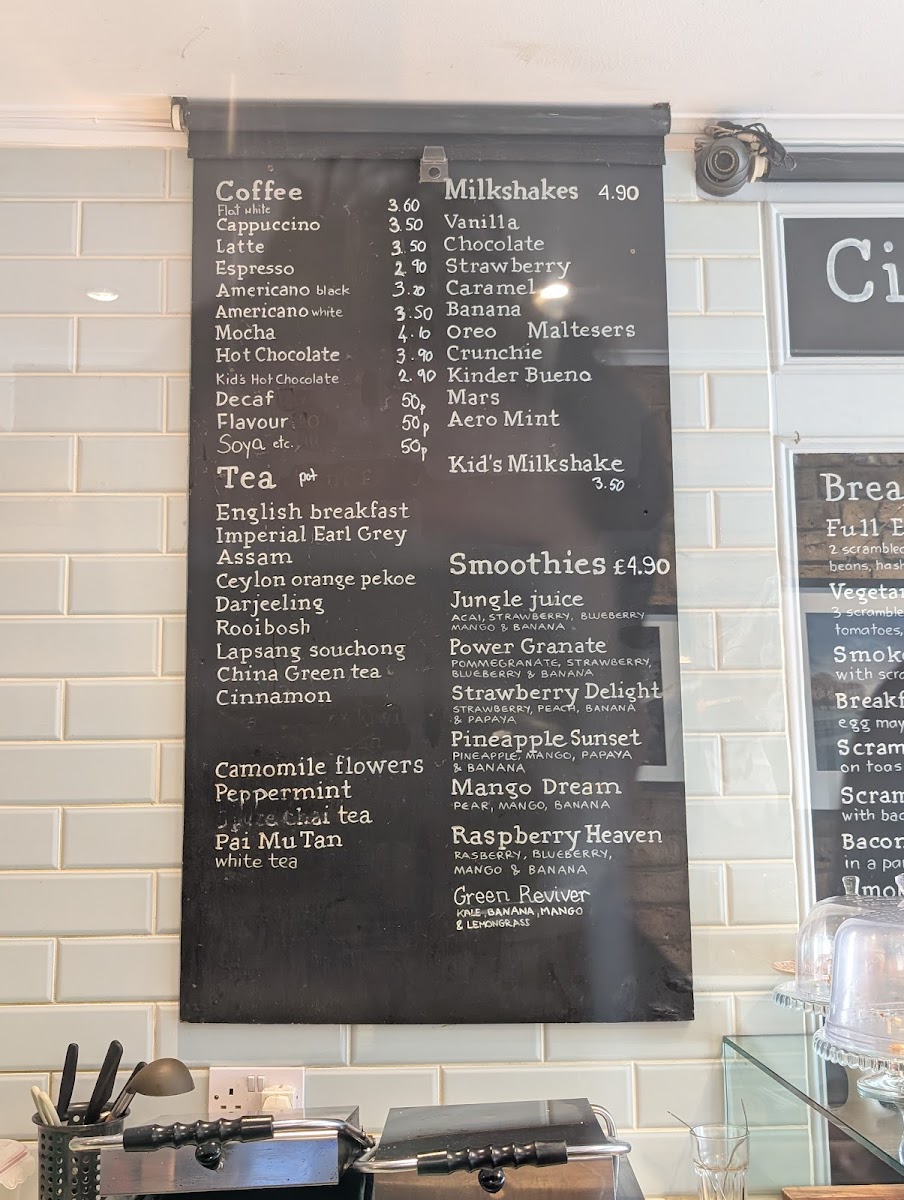 Coffee
Flat white 3.60
Cappuccino 3.50
Latte 3.50
Espresso 2.90
Americano black 3.20
Americano white 3.50
Mocha 4.10
Hot Chocolate 3.90
Kid's Hot Chocolate 2.90
Decaf 50p
Flavour 50p
Soya etc. 50p
Tea pot
English breakfast
Imperial Earl Grey
Assam
Ceylon orange pekoe
Darjeeling
Rooibosh
Lapsang souchong
China Green tea
Cinnamon
Camomile flowers
Peppermint
chai tea
Pai Mu Tan
white tea
Milkshakes 4.90
Vanilla
Chocolate
Strawberry
Caramel
Banana
Oreo Maltesers
Crunchie
Kinder Bueno
Mars
Aero Mint
Kid's Milkshake
3.50
Smoothies £4.90
Jungle juice
ACAI, STRAWBERRY, BLUEBERRY
MANGO & BANANA
Power Granate
POMMEGRANATE, STRAWBERRY,
BLUEBERRY & BANANA
Strawberry Delight
STRAWBERRY, PEACH, BANANA
& PAPAYA
Pineapple Sunset
PINEAPPLE, MANGO, PAPAYA
& BANANA
Mango Dream
PEAR, MANGO, BANANA
Raspberry Heaven
RASBERRY, BLUEBERRY,
MANGO & BANANA
Green Reviver
KALE, BANANA, MANGO
& LEMONGRASS
Ci
Brea
Full E
2 scrambled
beans, hash
Vegetar
3 scramble
tomatoes,
Smoke
with scra
Breakf
egg may
Scram
on toas
Scram
with bac
Bacon
in a pa